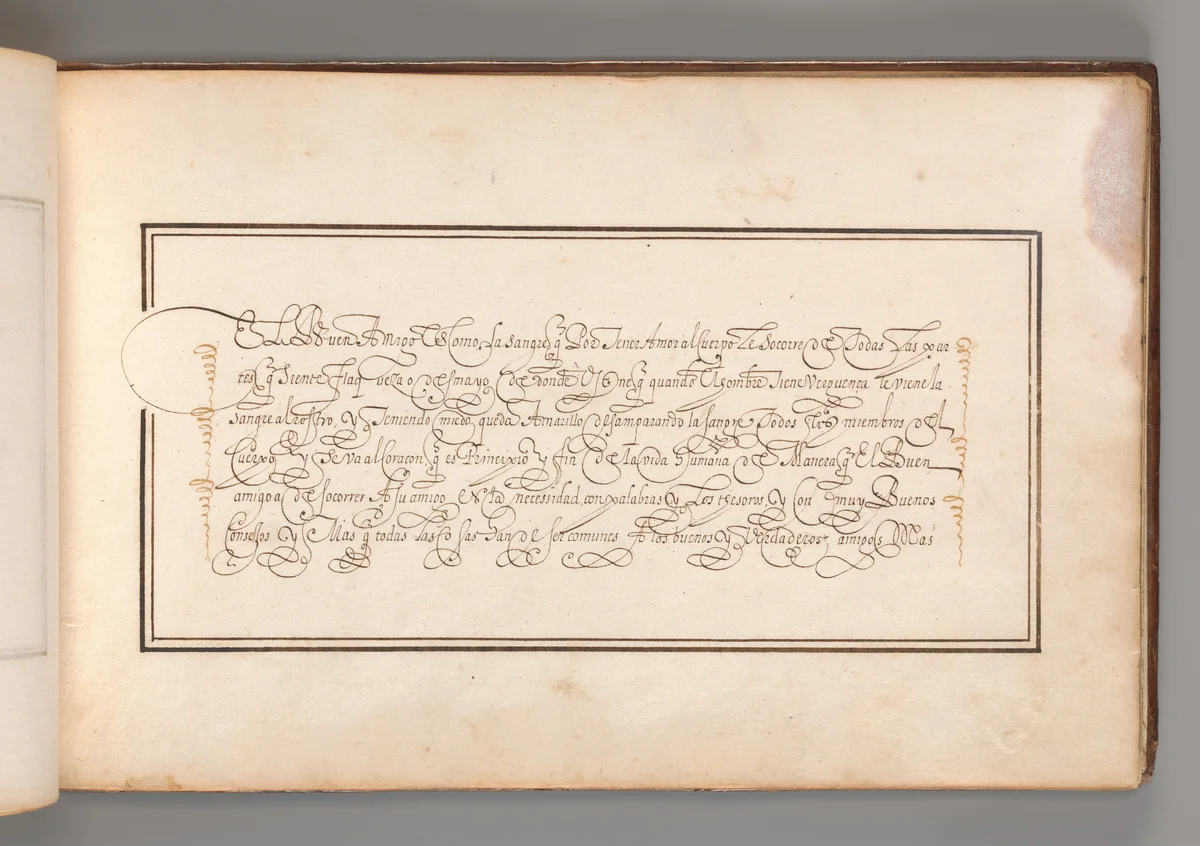 El Buen Amigo Es Como la sangre q Por Tener Amor al Cuerpo Le Socorre de Todas Las par
tes q Siente flaqueza o desmayo de donde Viene q quando El hombre Tiene Verguenca le viene la
sangre al Rostro, y Teniendo miedo queda Amarillo desamparando la sangre Todos los miembros del
Cuerpo y se va al Coracon, q es Principio y fin de la vida humana de Manera q El Buen
amigo a de socorrer A su amigo En la necessidad, con palabras y Los tesoros, y Con muy Buenos
Consejos y Mas q todas Las Cosas han de ser comunes A los buenos y Verdaderos amigos Mas